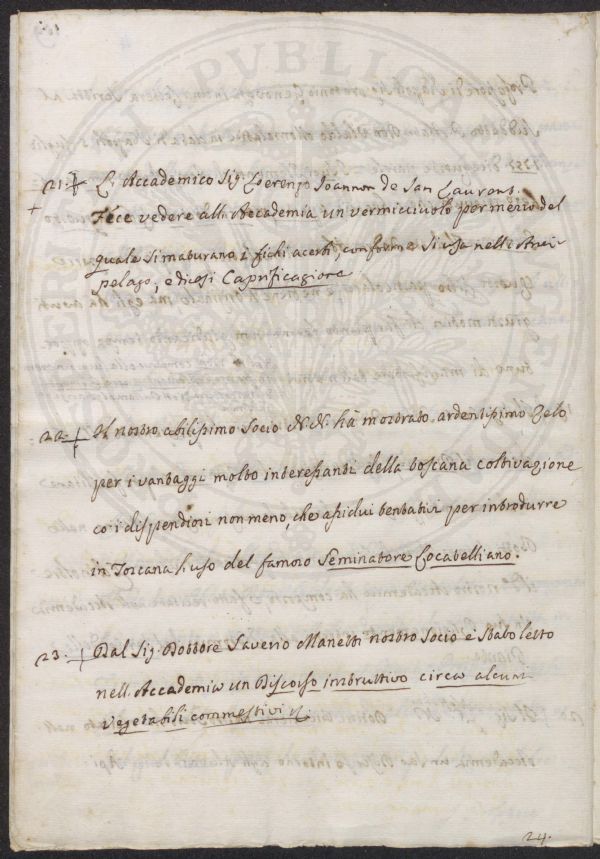 21. L'Accademico Sig. Lorenzo Joannon de San Laurens.
Fece vedere all'Accademia un vermicciuolo per mezzo del
quale si maturano i fichi acerbi, conforme si usa nelle Arci-
pelago, e dicesi Caprificazione
22. Il nostro abilissimo Socio N.N. hà mostrato ardentissimo Zelo
per i vantaggi molto interessanti della toscana coltivazione
co i dispendiosi non meno, che assidui tentativi per introdurre
in Toscana l'uso del famoso Seminatore Locatelliano.
23. Dal Sig. Dottore Saverio Manetti nostro Socio è stato letto
nell'Accademia un Discorso instruttivo circa alcuni
vegetabili commestivi
24.